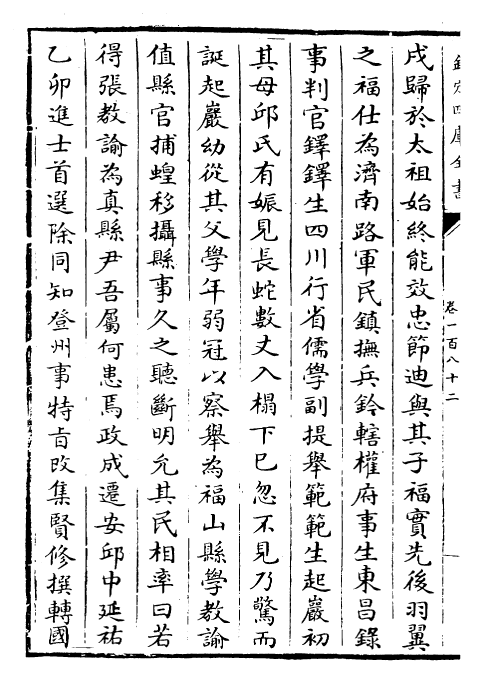 戌歸於太祖始終能效忠節迪與其子福實先後羽翼
之福仕為濟南路軍民鎮撫兵鈐轄權府事生東昌錄
事判官鐸鐸生四川行省儒學副提舉範範生起巖初
其母邱氏有娠見長蛇數丈入榻下已忽不見乃驚而
誕起巖幼從其父學年弱冠以察舉為福山縣學教諭
值縣官捕蝗移攝縣事久之聽斷明允其民相率曰若
得張教諭為真縣尹吾屬何患焉政成遷安邱中延祐
乙卯進士首選除同知登州事特㫖改集賢修撰轉國
欽定四庫全書
卷一百八十二